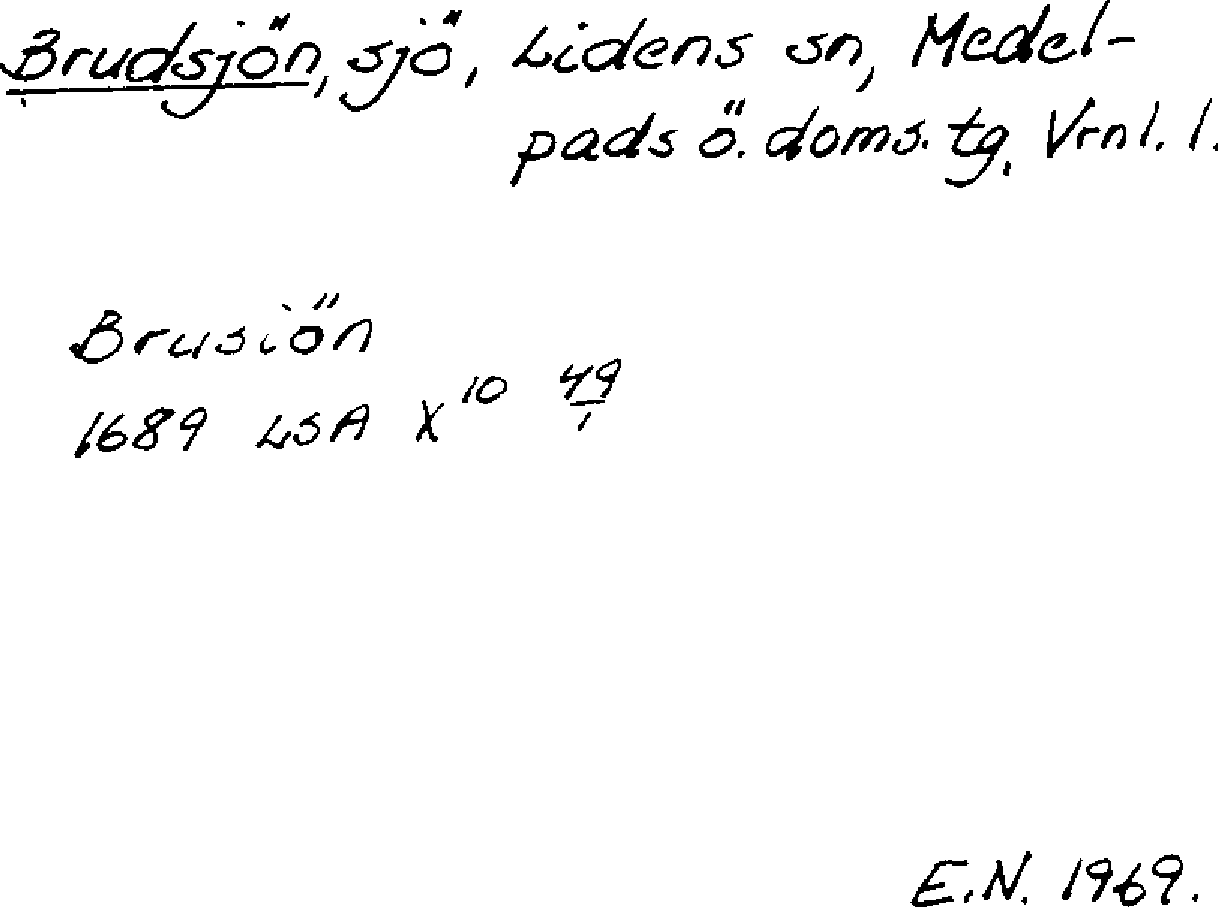 Brudsjön, sjö, Lidens sn, Medel-
pads ö. doms. tg. Vrnl. l.
Brusiön
1689 LSA X 10 49/1
E.N. 1969.